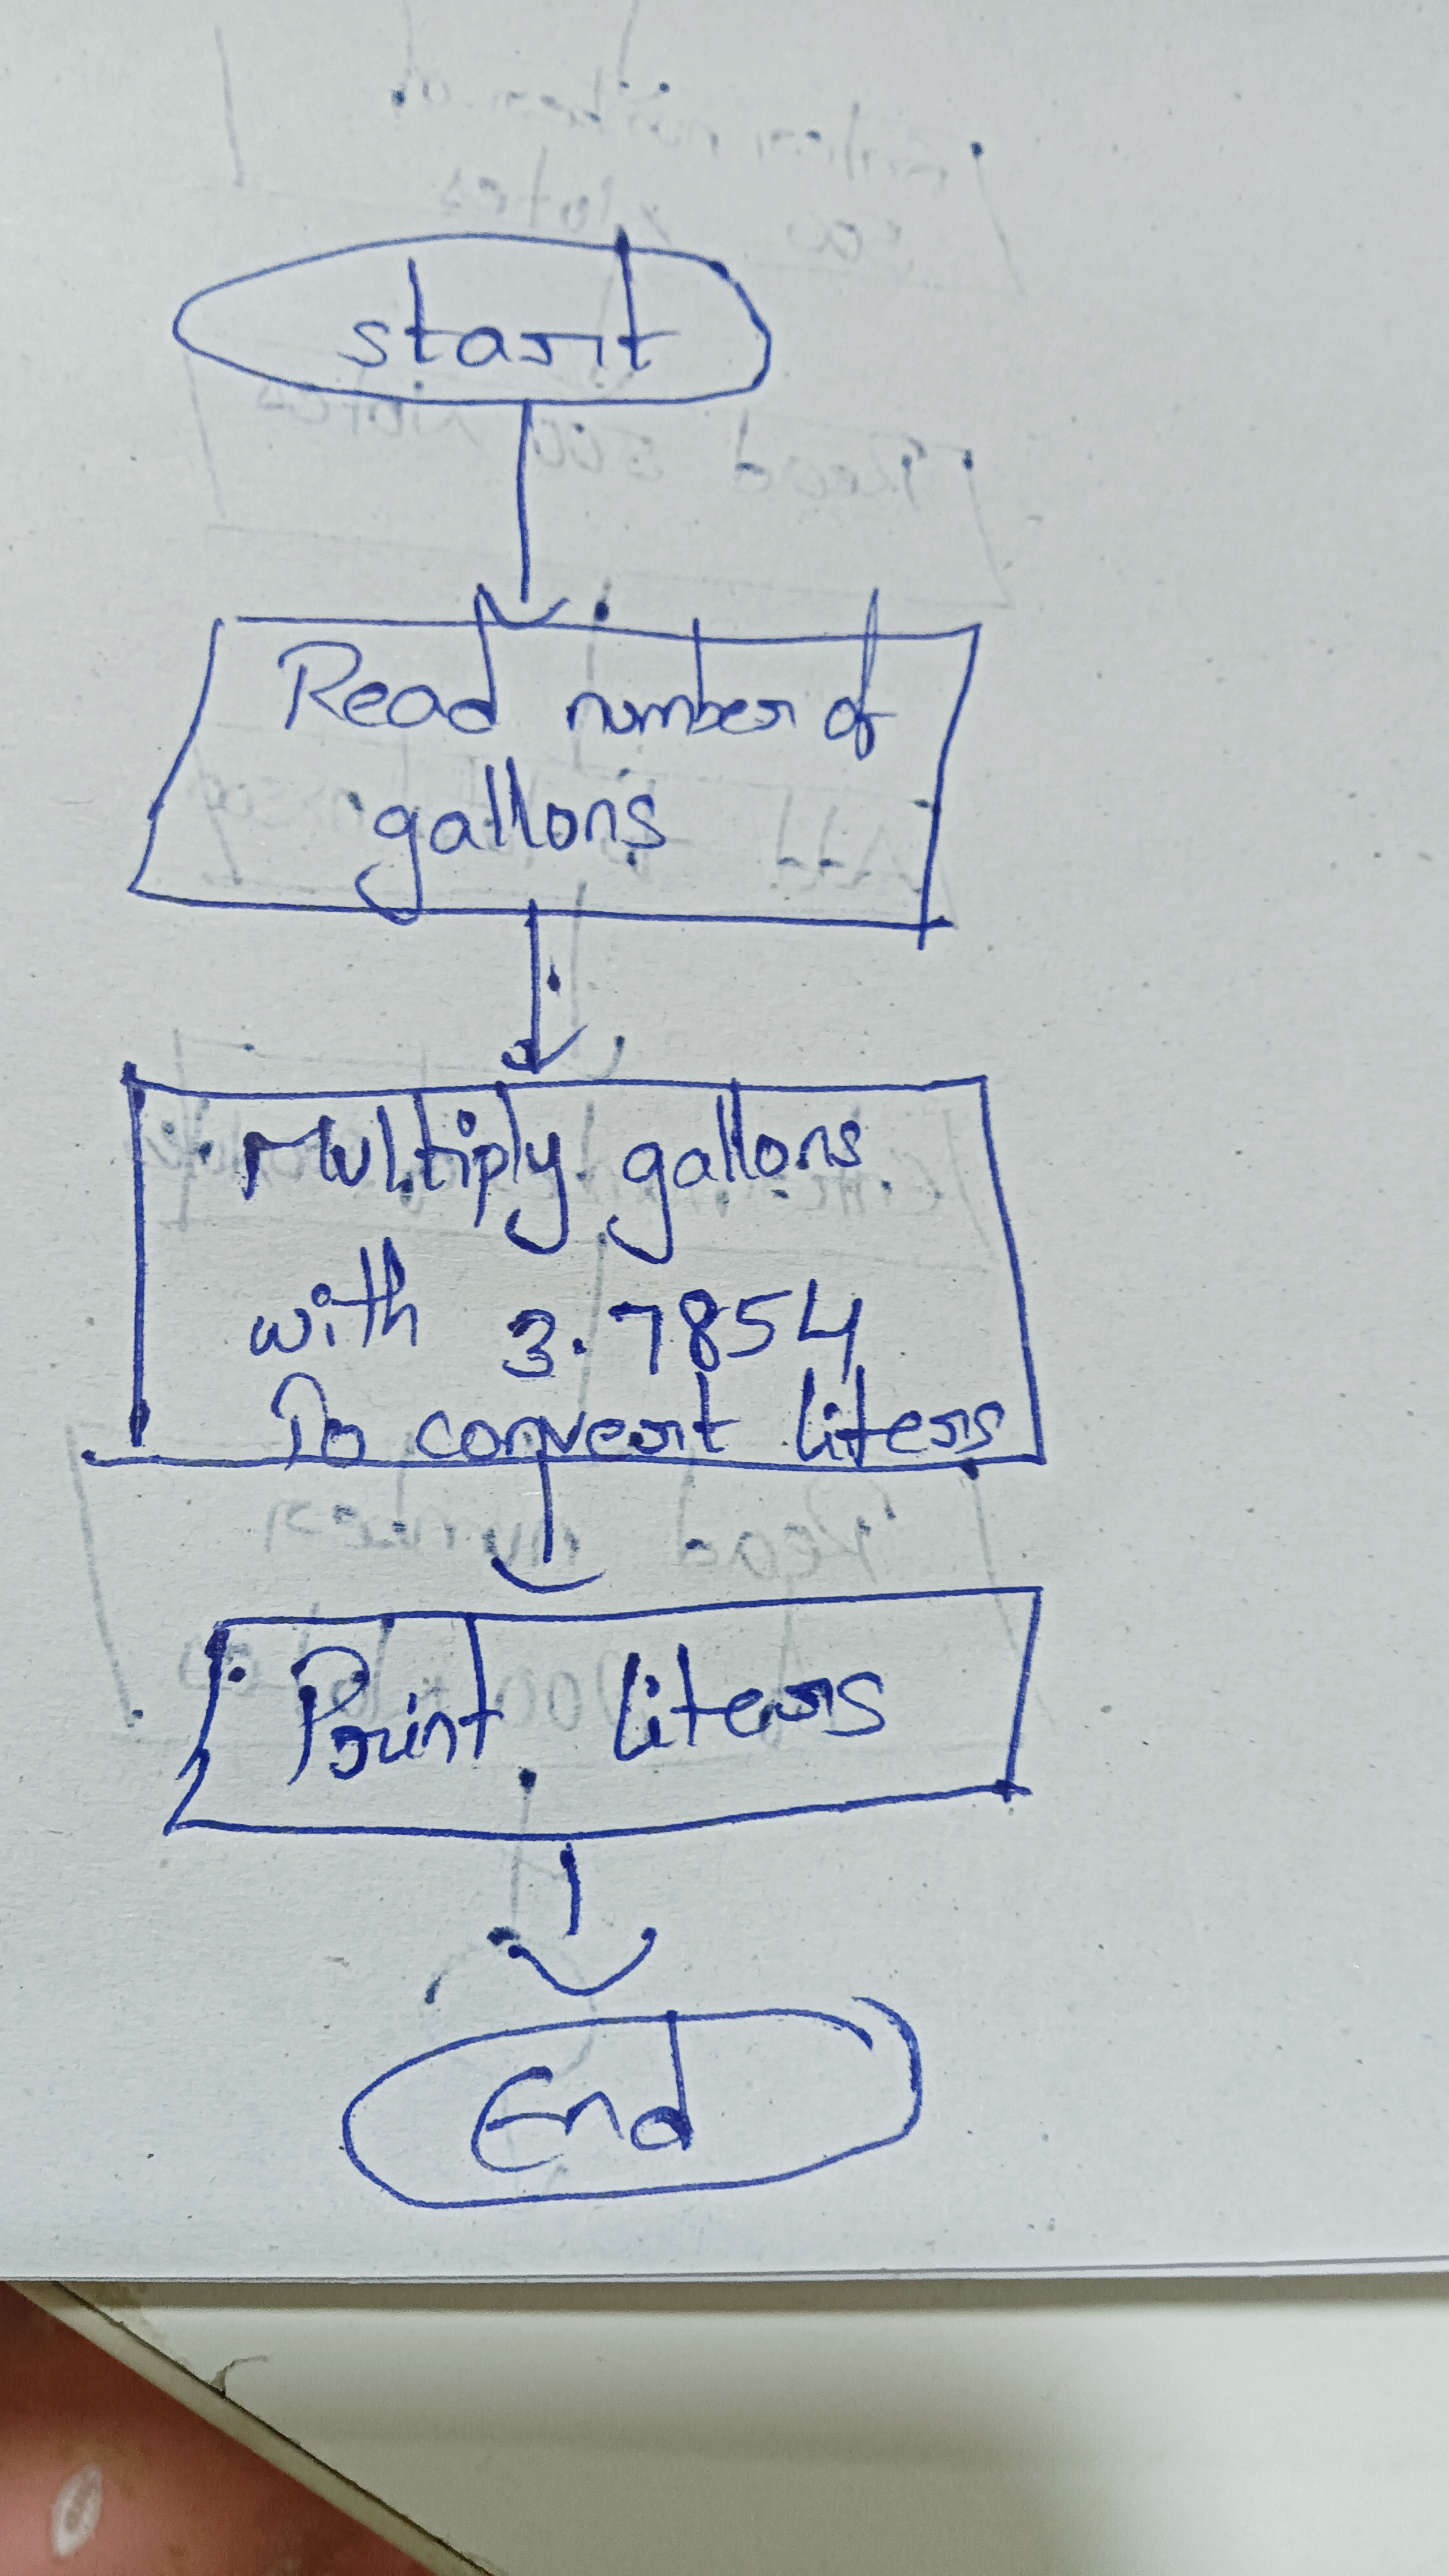 start
Read number of
gallons
Multiply gallons
with 3.7854
To convert liters
Print liters
End